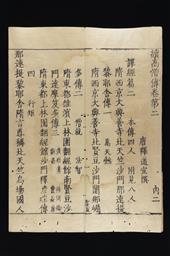 續高僧傳卷第二 內二
唐釋道宣撰
譯經篇二 本傳四人 附見八人
隋西京大興善寺北天竺沙門那連
耶舍傳一 萬天懿
隋西京大興善寺北賢豆沙門闍那崛
多傳二 僧就 法智
隋東都雒濱上林園翻經館南賢豆沙
門達摩笈多傳三
隋東都上林園翻經館沙門釋彥琮傳
四 行矩
那連提黎耶舍隋言尊稱北天竺烏場國人